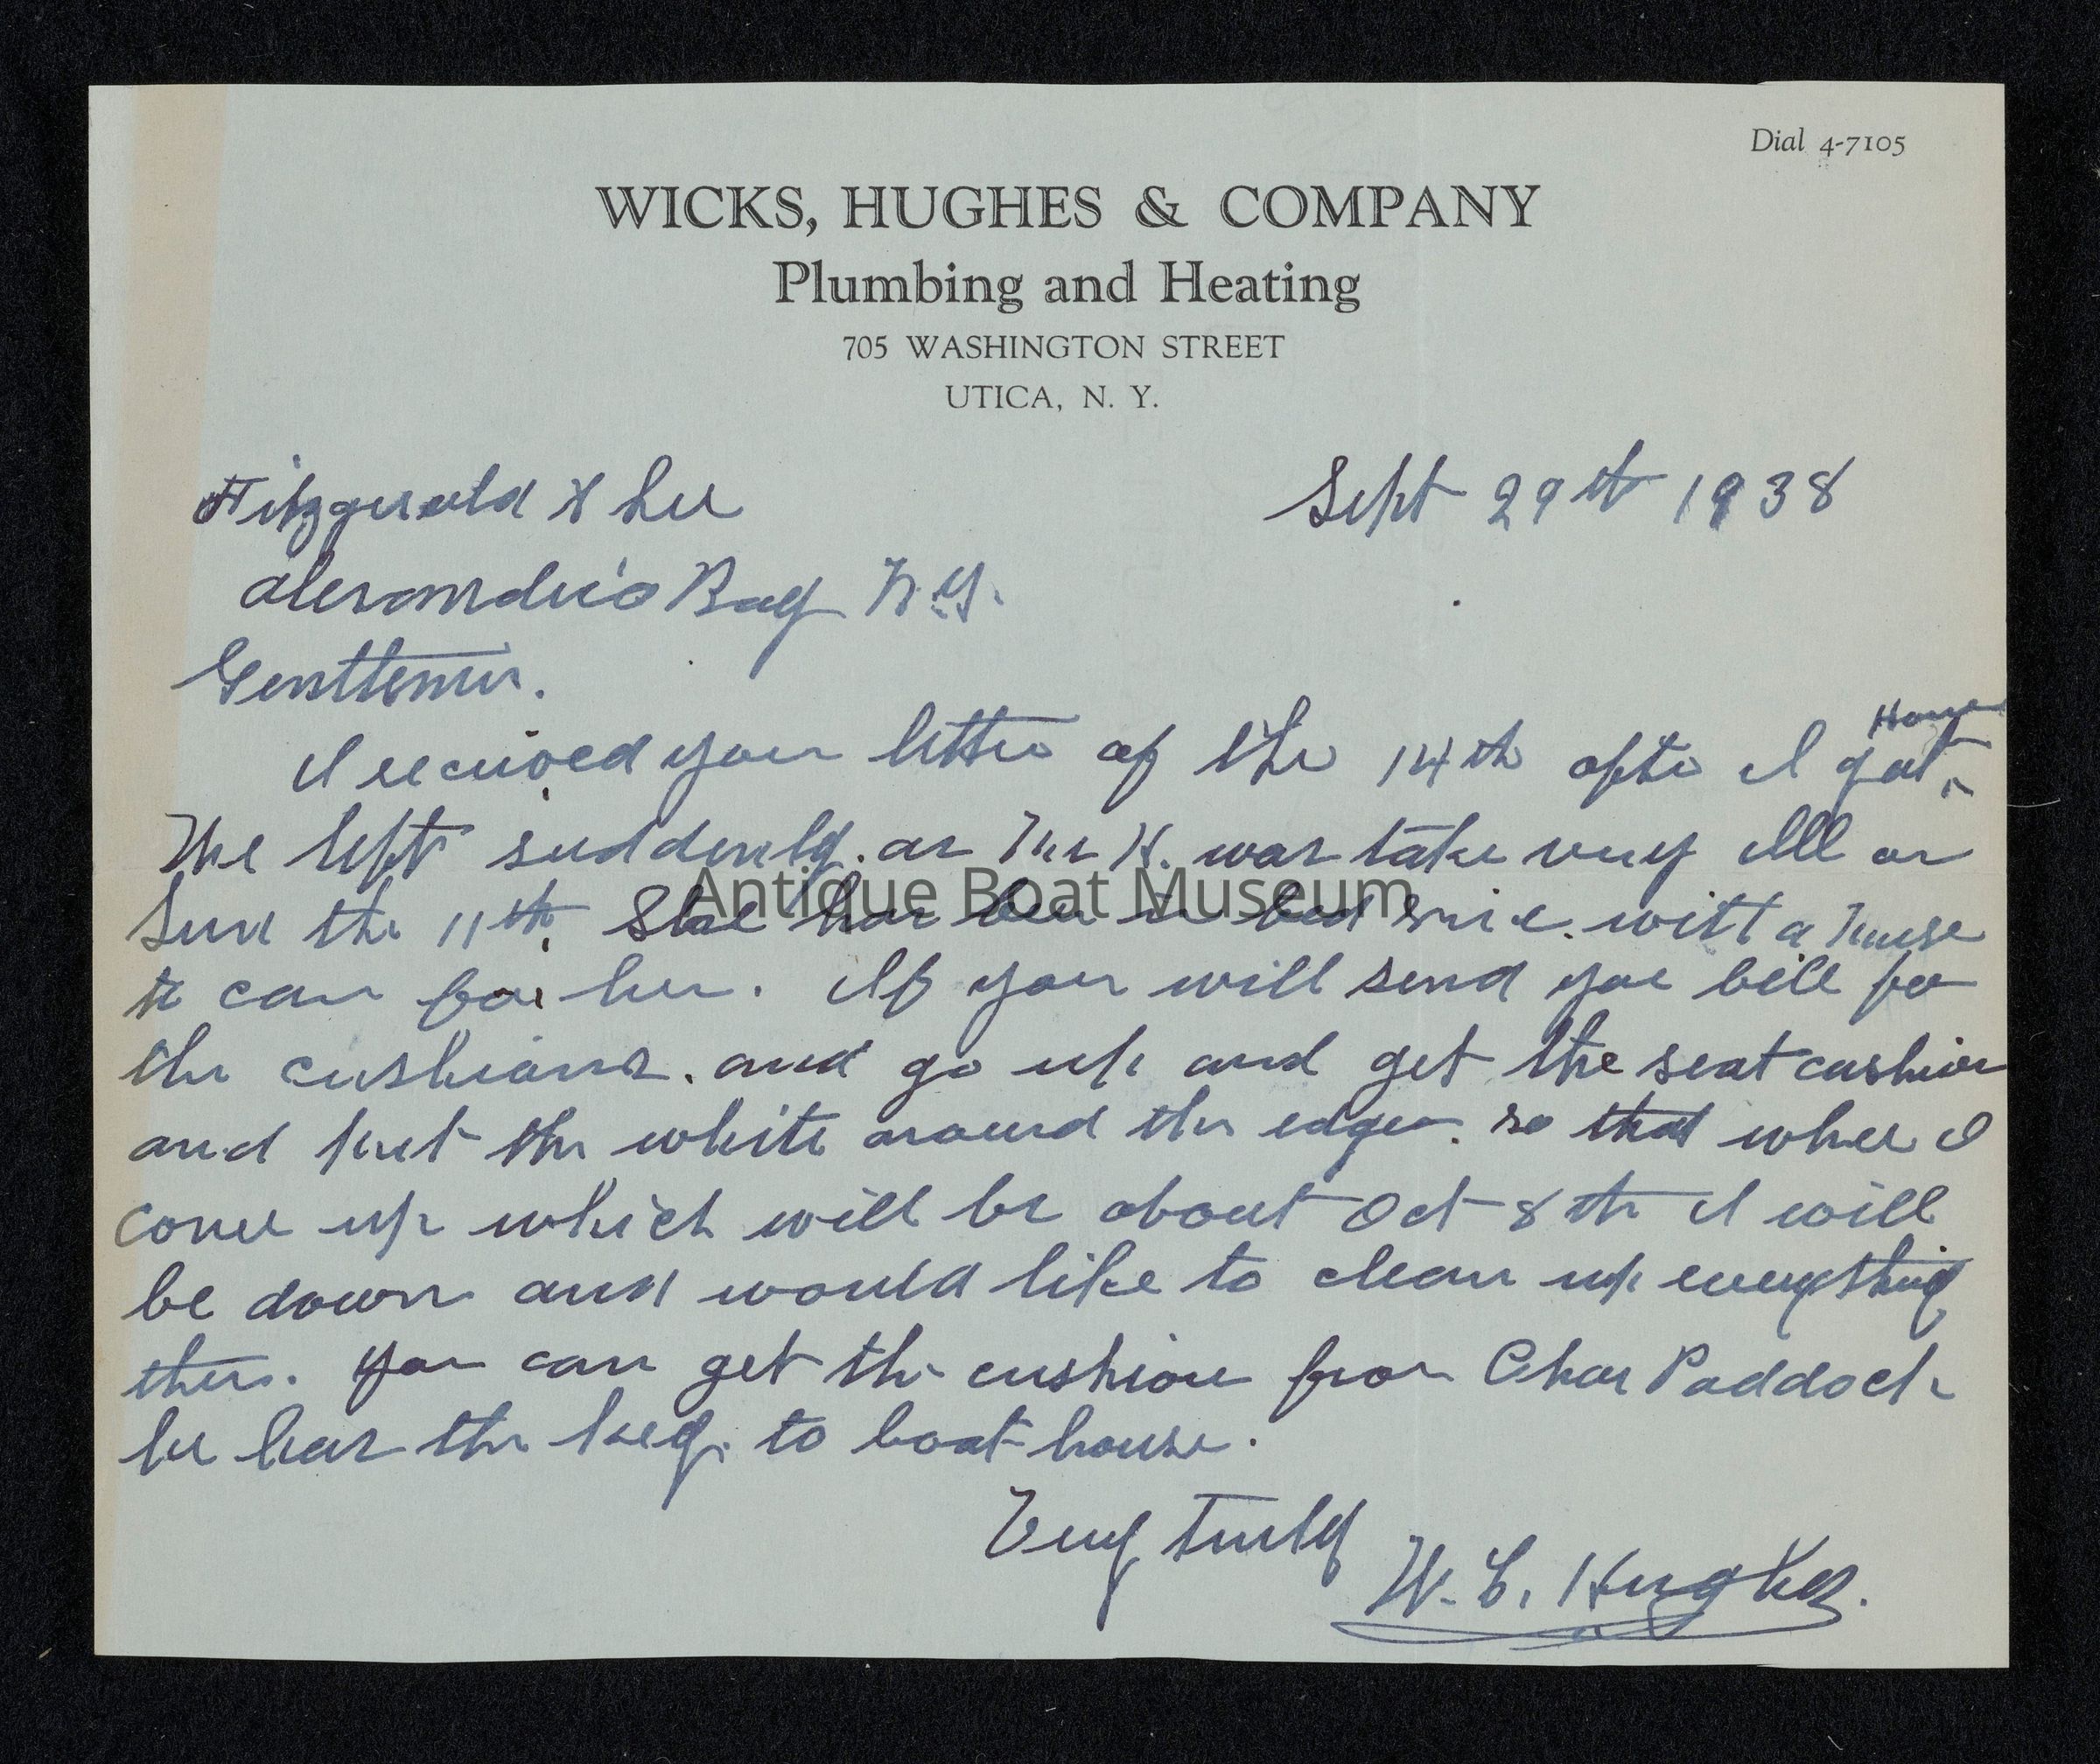 Dial 4-7105
WICKS, HUGHES & COMPANY
Plumbing and Heating
705 WASHINGTON STREET
UTICA, N. Y.
Fitzgerald & Lee
Sept 29th 1938
Alexandria Bay N.Y.
Gentlemen.
Home
I received your letter of the 14th after I got ^
We left suddenly. as Mrs H. was take very ill on
Sund the 11th. She has been in bed since. with a nurse
to care for her. If you will send you bill for
the cushions. and go up and get the seat cushion
and put the white around the edges. so that when I
come up which will be about Oct 8th I will
be down and would like to clean up everything
there. You can get the cushion from Chas Paddock
he has the key. to boat house.
Very truly
W. E. Hughes.
Antique Boat Museum